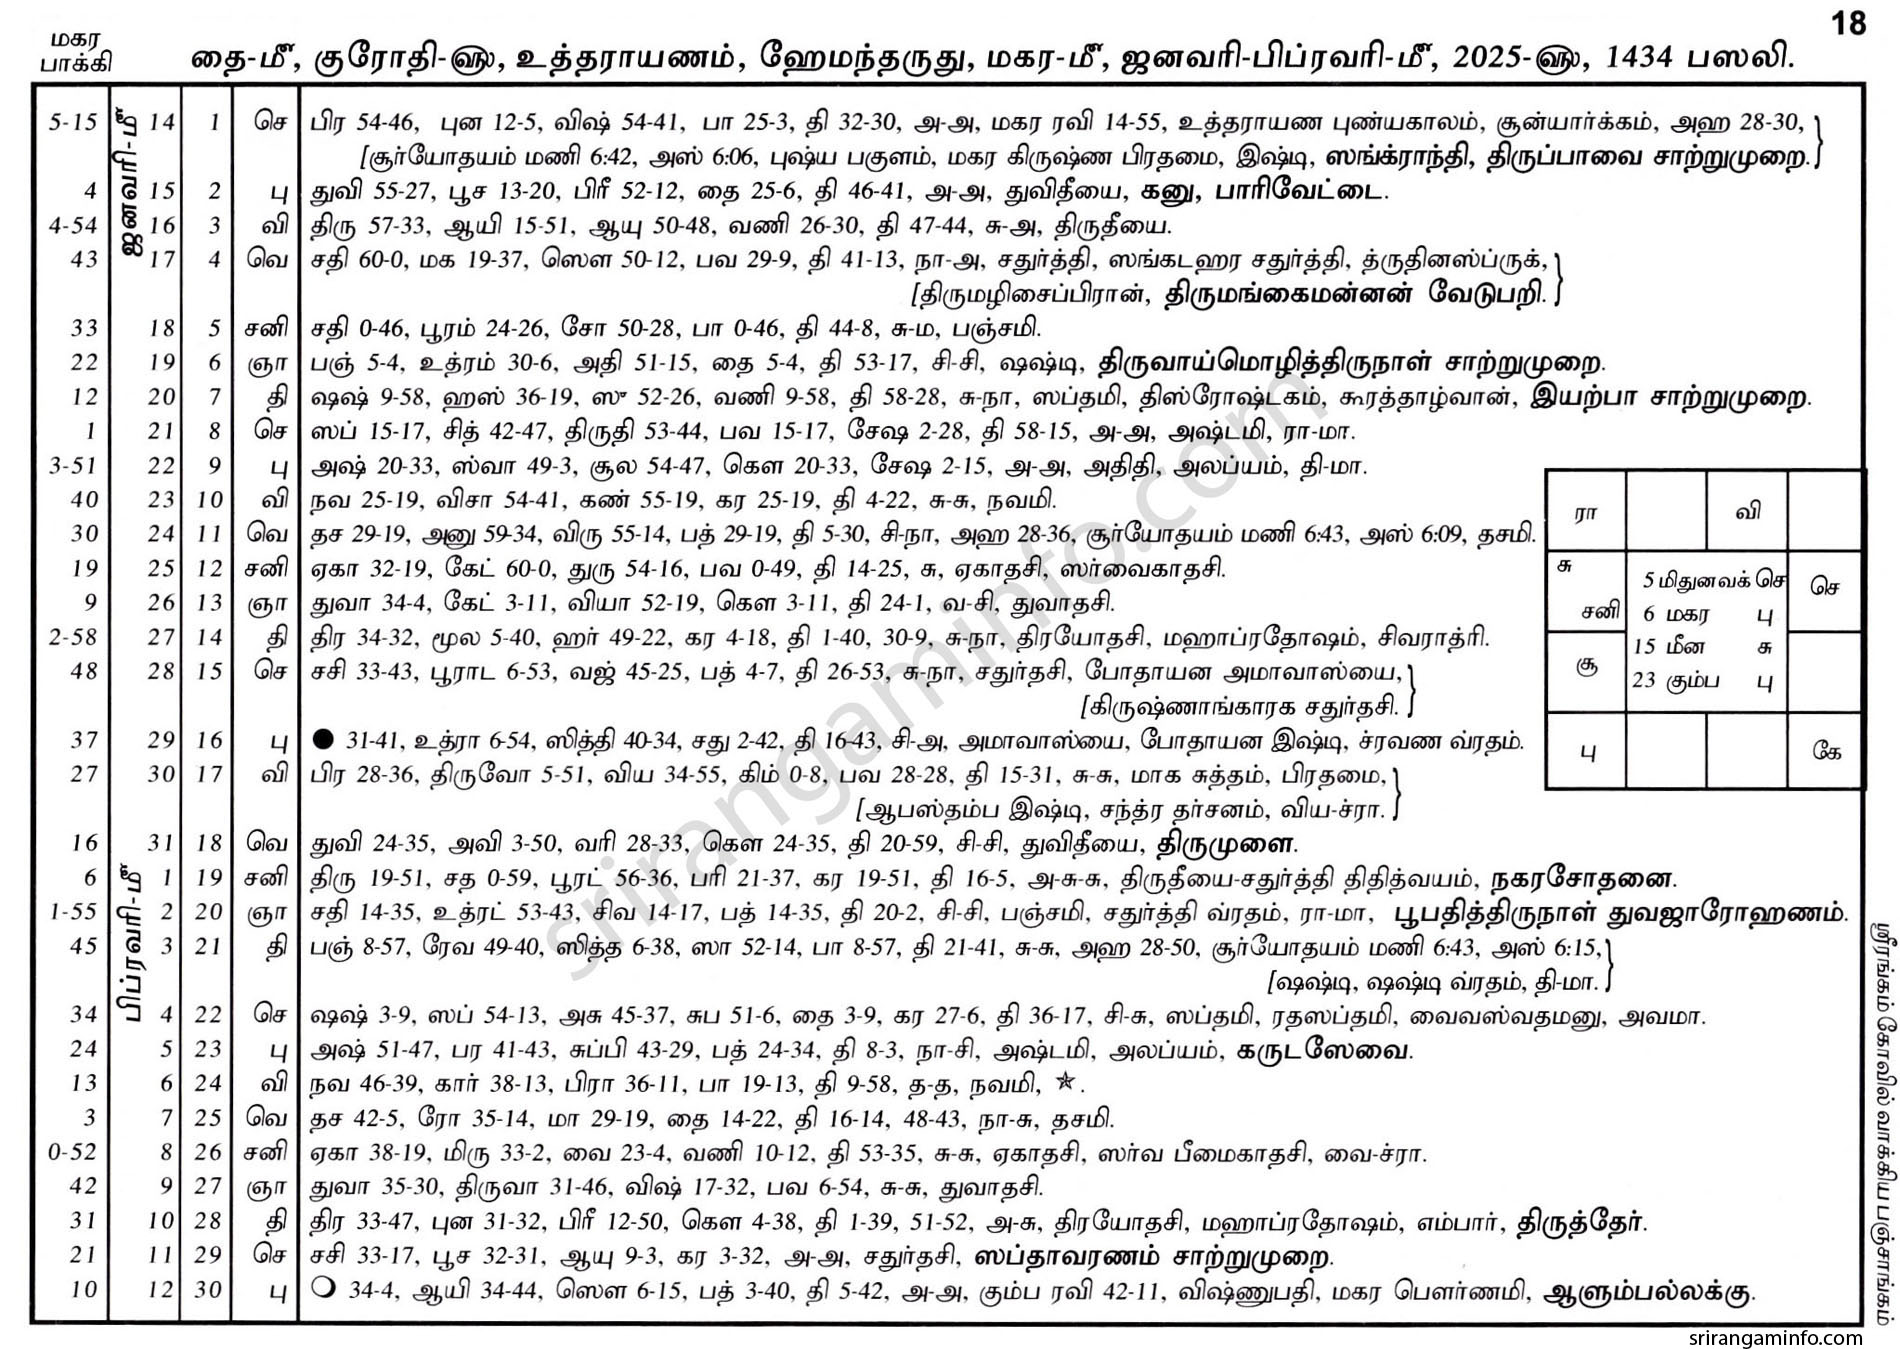 18
மகர
பாக்கி
தை-மீ, குரோதி-௵, உத்தராயணம், ஹேமந்தருது, மகர-மீ, ஜனவரி-பிப்ரவரி-மீ, 2025-௵, 1434 பஸலி.
ஜனவரி-மீ
5-15 14 1 செ பிர 54-46, புன 12-5, விஷ் 54-41, பா 25-3, தி 32-30, அ-அ, மகர ரவி 14-55, உத்தராயண புண்யகாலம், சூன்யார்க்கம், அஹ 28-30,}
[சூர்யோதயம் மணி 6:42, அஸ் 6:06, புஷ்ய பகுளம், மகர கிருஷ்ண பிரதமை, இஷ்டி, ஸங்க்ராந்தி, திருப்பாவை சாற்றுமுறை.
4 15 2 பு துவி 55-27, பூச 13-20, பிரீ 52-12, தை 25-6, தி 46-41, அ-அ, துவிதீயை, கனு, பாரிவேட்டை.
4-54 16 3 வி திரு 57-33, ஆயி 15-51, ஆயு 50-48, வணி 26-30, தி 47-44, சு-அ, திருதீயை.
43 17 4 வெ சதி 60-0, மக 19-37, ஸௌ 50-12, பவ 29-9, தி 41-13, நா-அ, சதுர்த்தி, ஸங்கடஹர சதுர்த்தி, த்ருதினஸ்ப்ருக்,}
[திருமழிசைப்பிரான், திருமங்கைமன்னன் வேடுபறி.
33 18 5 சனி சதி 0-46, பூரம் 24-26, சோ 50-28, பா 0-46, தி 44-8, சு-ம, பஞ்சமி.
22 19 6 ஞா பஞ் 5-4, உத்ரம் 30-6, அதி 51-15, தை 5-4, தி 53-17, சி-சி, ஷஷ்டி, திருவாய்மொழித்திருநாள் சாற்றுமுறை.
12 20 7 தி ஷஷ் 9-58, ஹஸ் 36-19, ஸு 52-26, வணி 9-58, தி 58-28, சு-நா, ஸப்தமி, திஸ்ரோஷ்டகம், கூரத்தாழ்வான், இயற்பா சாற்றுமுறை.
1 21 8 செ ஸப் 15-17, சித் 42-47, திருதி 53-44, பவ 15-17, சேஷ 2-28, தி 58-15, அ-அ, அஷ்டமி, ரா-மா.
3-51 22 9 பு அஷ் 20-33, ஸ்வா 49-3, சூல 54-47, கௌ 20-33, சேஷ 2-15, அ-அ, அதிதி, அலப்யம், தி-மா.
40 23 10 வி நவ 25-19, விசா 54-41, கண் 55-19, கர 25-19, தி 4-22, சு-சு, நவமி.
30 24 11 வெ தச 29-19, அனு 59-34, விரு 55-14, பத் 29-19, தி 5-30, சி-நா, அஹ 28-36, சூர்யோதயம் மணி 6:43, அஸ் 6:09, தசமி.
19 25 12 சனி ஏகா 32-19, கேட் 60-0, துரு 54-16, பவ 0-49, தி 14-25, சு, ஏகாதசி, ஸர்வைகாதசி.
9 26 13 ஞா துவா 34-4, கேட் 3-11, வியா 52-19, கௌ 3-11, தி 24-1, வ-சி, துவாதசி.
2-58 27 14 தி திர 34-32, மூல 5-40, ஹர் 49-22, கர 4-18, தி 1-40, 30-9, சு-நா, திரயோதசி, மஹாப்ரதோஷம், சிவராத்ரி.
48 28 15 செ சசி 33-43, பூராட 6-53, வஜ் 45-25, பத் 4-7, தி 26-53, சு-நா, சதுர்தசி, போதாயன அமாவாஸ்யை,}
[கிருஷ்ணாங்காரக சதுர்தசி.
37 29 16 பு ● 31-41, உத்ரா 6-54, ஸித்தி 40-34, சது 2-42, தி 16-43, சி-அ, அமாவாஸ்யை, போதாயன இஷ்டி, ச்ரவண வ்ரதம்.
27 30 17 வி பிர 28-36, திருவோ 5-51, விய 34-55, கிம் 0-8, பவ 28-28, தி 15-31, சு-சு, மாக சுத்தம், பிரதமை,}
[ஆபஸ்தம்ப இஷ்டி, சந்த்ர தர்சனம், விய-ச்ரா.
16 31 18 வெ துவி 24-35, அவி 3-50, வரி 28-33, கௌ 24-35, தி 20-59, சி-சி, துவிதீயை, திருமுளை.
பிப்ரவரி-மீ
6 1 19 சனி திரு 19-51, சத 0-59, பூரட் 56-36, பரி 21-37, கர 19-51, தி 16-5, அ-சு-சு, திருதீயை-சதுர்த்தி திதித்வயம், நகரசோதனை.
1-55 2 20 ஞா சதி 14-35, உத்ரட் 53-43, சிவ 14-17, பத் 14-35, தி 20-2, சி-சி, பஞ்சமி, சதுர்த்தி வ்ரதம், ரா-மா, பூபதித்திருநாள் துவஜாரோஹணம்.
45 3 21 தி பஞ் 8-57, ரேவ 49-40, ஸித்த 6-38, ஸா 52-14, பா 8-57, தி 21-41, சு-சு, அஹ 28-50, சூர்யோதயம் மணி 6:43, அஸ் 6:15,}
[ஷஷ்டி, ஷஷ்டி வ்ரதம், தி-மா.
34 4 22 செ ஷஷ் 3-9, ஸப் 54-13, அசு 45-37, சுப 51-6, தை 3-9, கர 27-6, தி 36-17, சி-சு, ஸப்தமி, ரதஸப்தமி, வைவஸ்வதமனு, அவமா.
24 5 23 பு அஷ் 51-47, பர 41-43, சுப்பி 43-29, பத் 24-34, தி 8-3, நா-சி, அஷ்டமி, அலப்யம், கருடஸேவை.
13 6 24 வி நவ 46-39, கார் 38-13, பிரா 36-11, பா 19-13, தி 9-58, த-த, நவமி, ☆.
3 7 25 வெ தச 42-5, ரோ 35-14, மா 29-19, தை 14-22, தி 16-14, 48-43, நா-சு, தசமி.
0-52 8 26 சனி ஏகா 38-19, மிரு 33-2, வை 23-4, வணி 10-12, தி 53-35, சு-சு, ஏகாதசி, ஸர்வ பீமைகாதசி, வை-ச்ரா.
42 9 27 ஞா துவா 35-30, திருவா 31-46, விஷ் 17-32, பவ 6-54, சு-சு, துவாதசி.
31 10 28 தி திர 33-47, புன 31-32, பிரீ 12-50, கௌ 4-38, தி 1-39, 51-52, அ-சு, திரயோதசி, மஹாப்ரதோஷம், எம்பார், திருத்தேர்.
21 11 29 செ சசி 33-17, பூச 32-31, ஆயு 9-3, கர 3-32, அ-அ, சதுர்தசி, ஸப்தாவரணம் சாற்றுமுறை.
10 12 30 பு ❍ 34-4, ஆயி 34-44, ஸௌ 6-15, பத் 3-40, தி 5-42, அ-அ, கும்ப ரவி 42-11, விஷ்ணுபதி, மகர பௌர்ணமி, ஆளும்பல்லக்கு.
ரா வி
சு
சனி
செ
5 மிதுனவக் செ
6 மகர பு
15 மீன சு
23 கும்ப பு
சூ
பு கே
ஸ்ரீரங்கம் கோவில் வாக்கிய பஞ்சாங்கம்
srirangaminfo.com
srirangaminfo.com